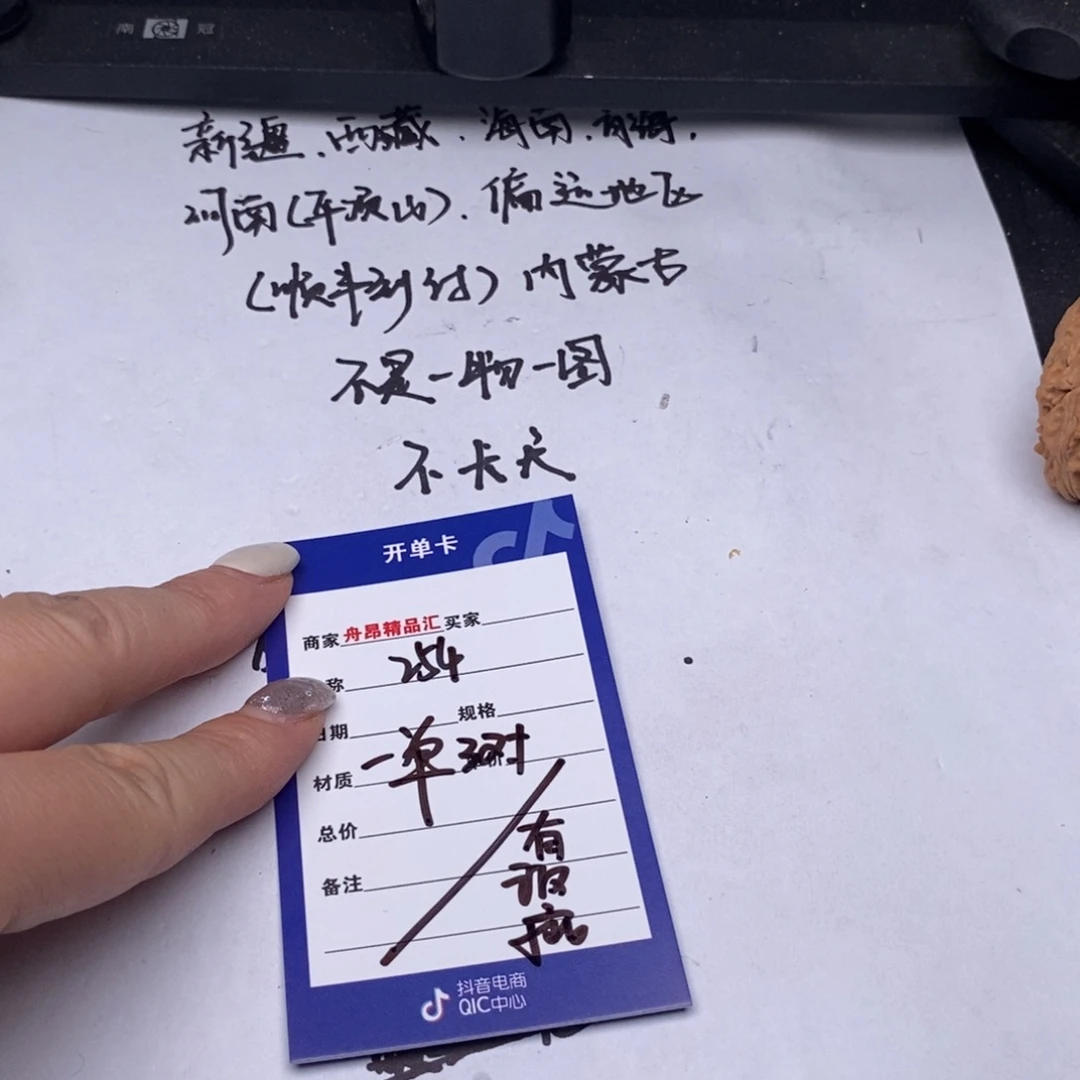 南 冠
新疆、西藏、海南、青海、
河南(平顶山)、偏远地区
(顺丰到付)内蒙古
不是一物一图
不卡天
开单卡
商家 舟昂精品汇 买家
称 254
日期 规格
材质 一单3对
总价
有
瑕
疵
备注
抖音电商
QIC中心